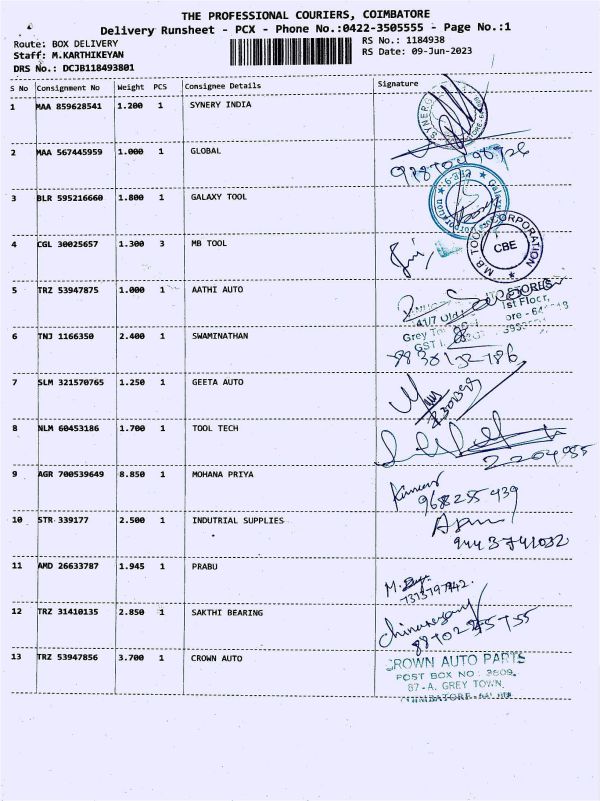 THE PROFESSIONAL COURIERS, COIMBATORE
Delivery Runsheet - PCX - Phone No.:0422-3505555 - Page No.:1
Route: BOX DELIVERY RS No.: 1184938
Staff: M.KARTHIKEYAN RS Date: 09-Jun-2023
DRS No.: DCJB118493801
S No Consignment No Weight PCS Consignee Details Signature
1 MAA 859628541 1.200 1 SYNERY INDIA
2 MAA 567445959 1.000 1 GLOBAL
3 BLR 595216660 1.800 1 GALAXY TOOL
4 CGL 30025657 1.300 3 MB TOOL
M.B. TOOL CORPORATION
CBE
5 TRZ 53947875 1.000 1 AATHI AUTO
1st Floor,
6 TNJ 1166350 2.400 1 SWAMINATHAN
7 SLM 321570765 1.250 1 GEETA AUTO
8 NLM 60453186 1.700 1 TOOL TECH
2204985
9 AGR 700539649 8.850 1 MOHANA PRIYA
9688255439
10 STR 339177 2.500 1 INDUTRIAL SUPPLIES
9443741032
11 AMD 26633787 1.945 1 PRABU
12 TRZ 31410135 2.850 1 SAKTHI BEARING
13 TRZ 53947856 3.700 1 CROWN AUTO
CROWN AUTO PARTS
POST BOX NO: 3809,
87-A, GREY TOWN,